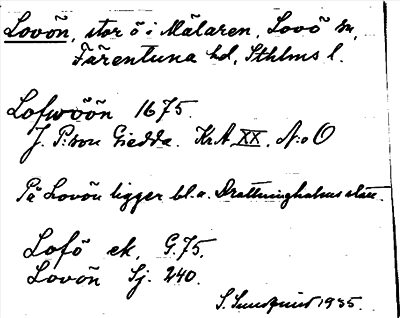 Lovön, stor ö i Mälaren, Lovö sn,
Färentuna hd, Sthlms l.
Lofwöön 1675.
J. P:son Giedda. KrA XX. N:o O
På Lovön ligger bl.a. Drottningholms slott.
Lofö ek. G. 75.
Lovön Sj. 240.
S. Sundquist 1935.